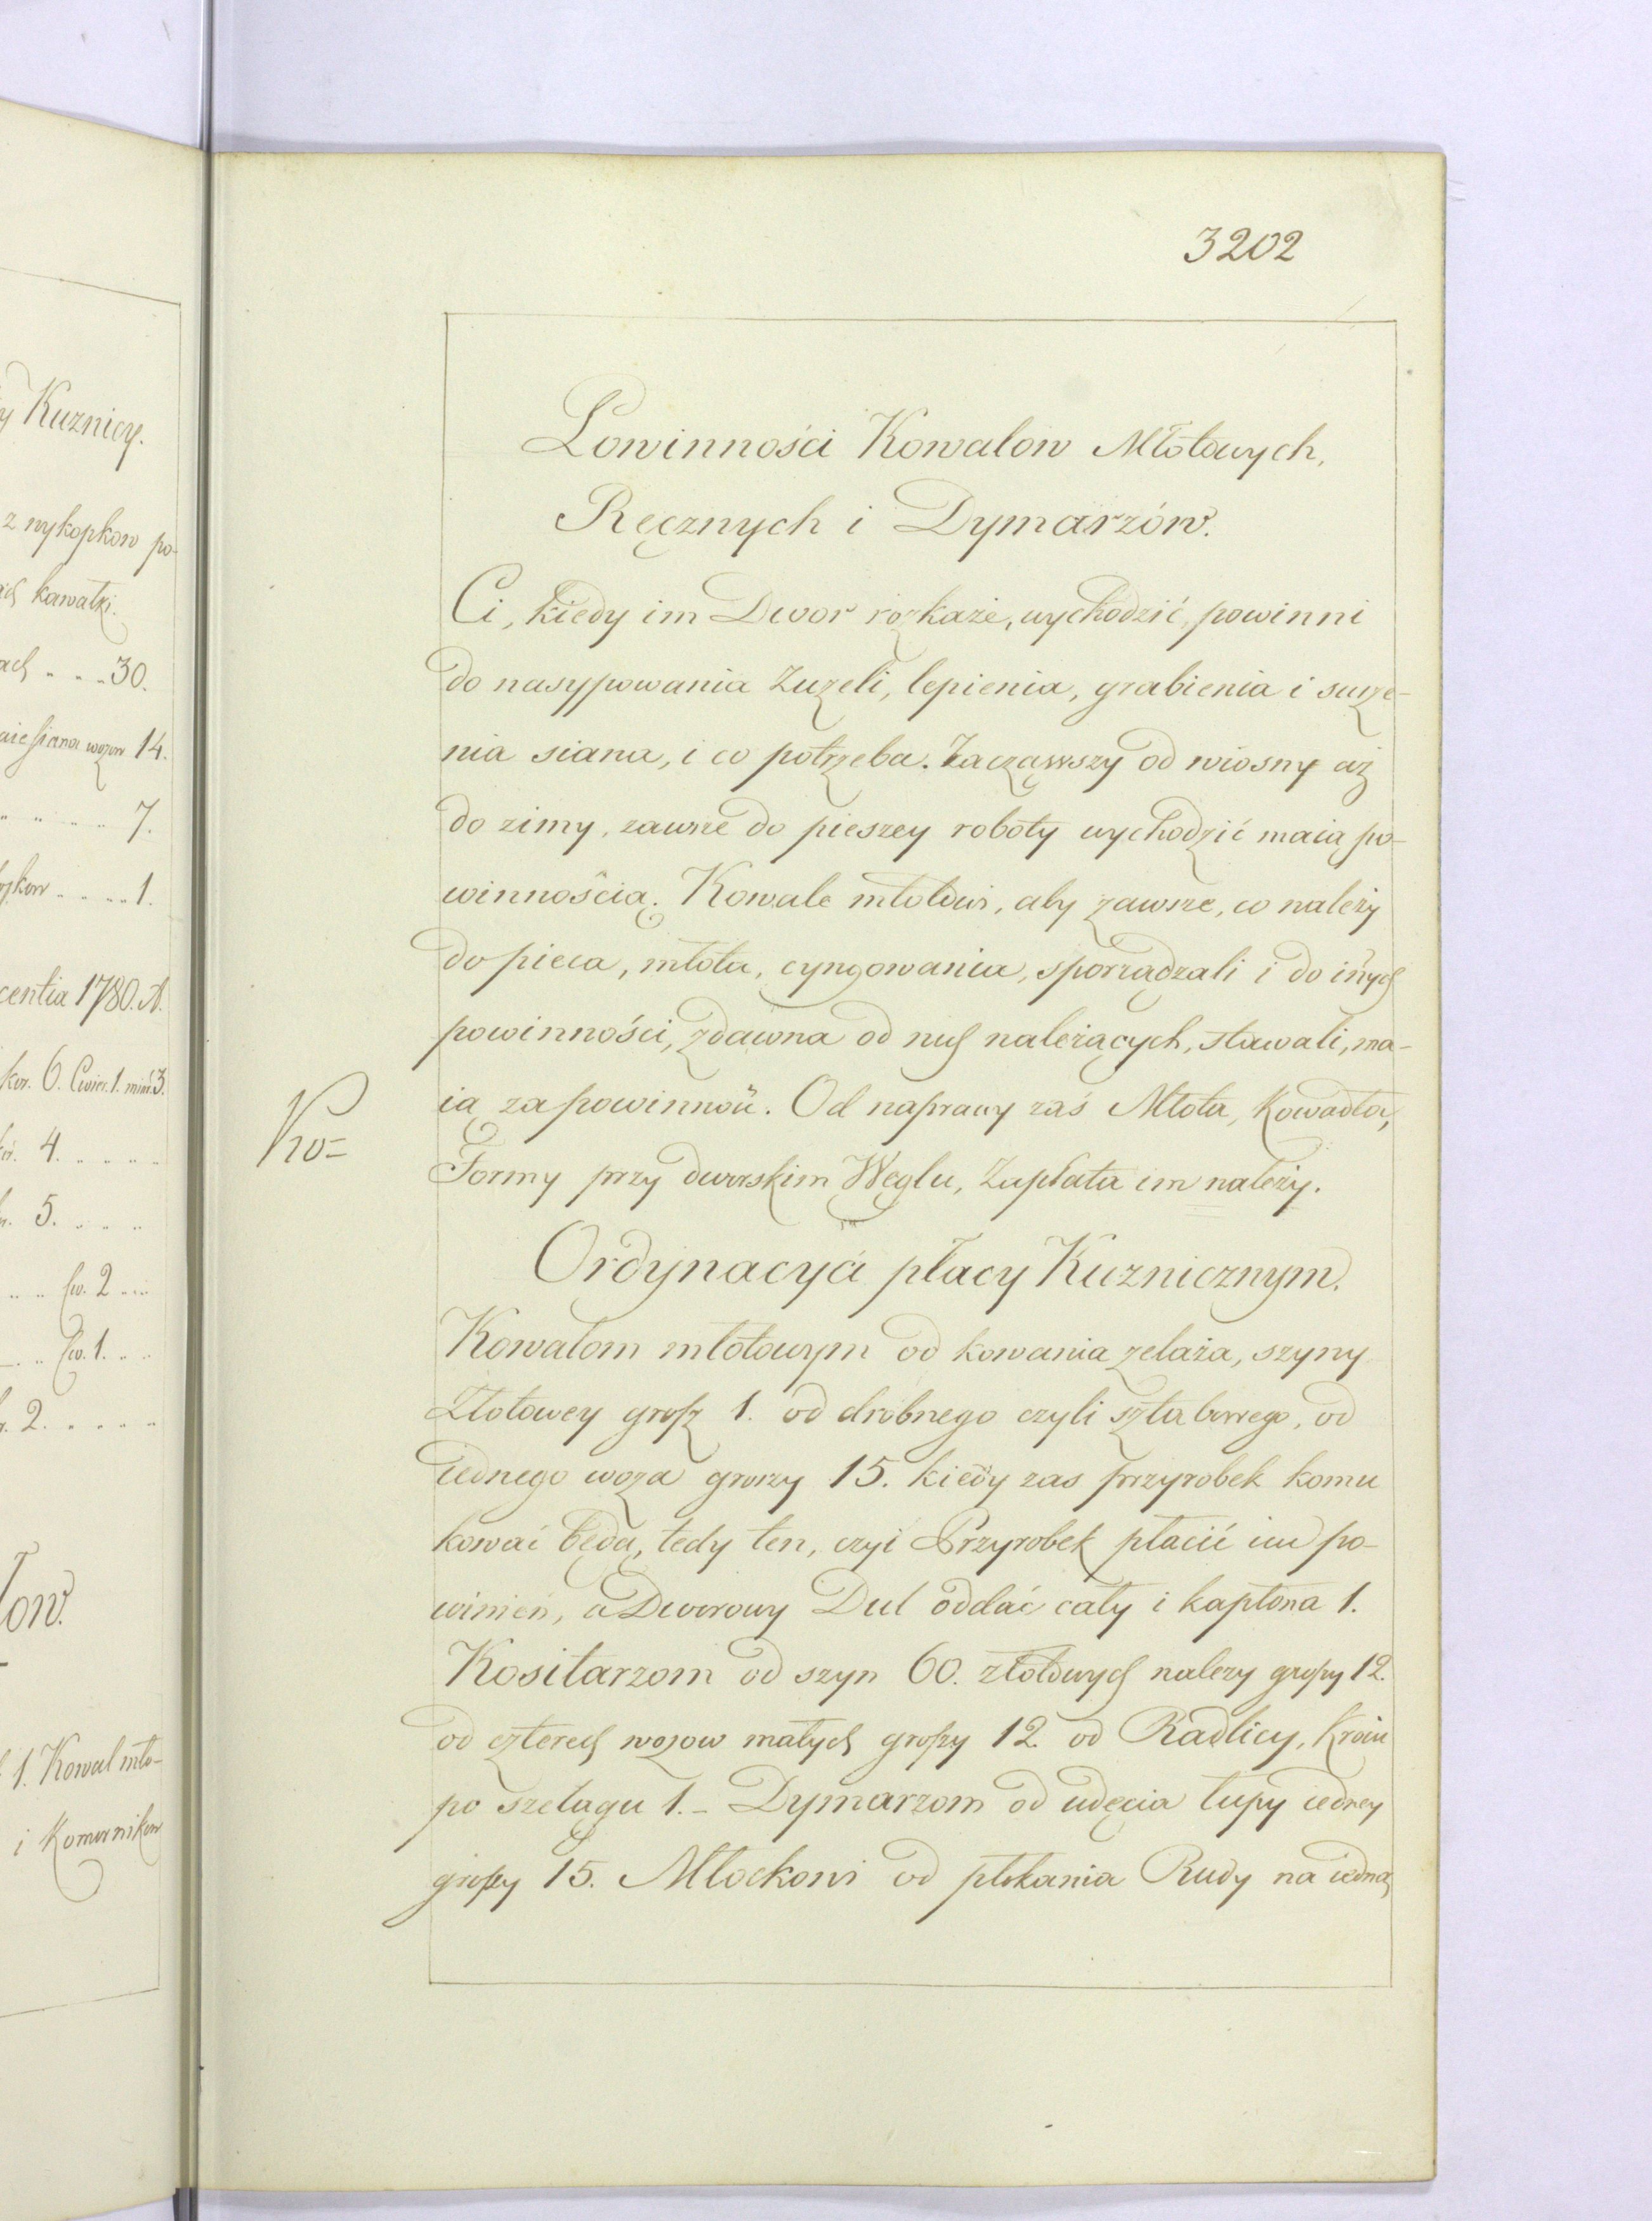 3202
Powinności Kowalow Młotowych,
Ręcznych i Dymarzów.
Ci, kiedy im Dwor rozkaże, wychodzić, powinni
do nasypowania Zuzeli, lepienia, grabienia i susze-
nia siana, i co potrzeba. Zacząwszy od wiosny aż
do zimy, zawsze do pieszey roboty wychodzić maią po-
winnością. Kowale młotowi, aby zawsze, co należy
do pieca, młota, cyngowania, sporządzali i do iñych
powinności, zdawna od nich należących, stawali, ma-
ią za powinność. Od naprawy zaś Młota, Kowadła,
Formy przy dworskim Węglu, Zapłata im należy.
Ordynacya płacy Kuznicznym.
Kowalom młotowym od kowania żelaza, szyny
Złotowey grosz 1. od drobnego czyli sztabowego, od
iednego woza groszy 15. kiedy zas przyrobek komu
kować będą, tedy ten, czyi Przyrobek płacić im po-
winień, a Dworowy Dul oddać cały i kapłona 1.
Kositarzom od szyn 60. złotowych nalezy groszy 12.
od czterech wozow małych groszy 12. od Radlicy, Kroiu
po szelągu 1. _ Dymarzom od udęcia łupy iedney
groszy 15. Młockowi od płokania Rudy na iedną
Pro=
y Kuznicy.
z wykopkow po-
ich kawałki.
ach . . . 30.
wozow 14.
. . . . . 7.
. . . . . 1.
centia 1780. A.
kor. 6. Cwier. 1. miar. 3.
kor. 4. . . . .
5. . . . .
. . Cw. 2 . . .
. . Cw. 1. . .
2. . . . .
1. Kowal mło-
i Komornikow